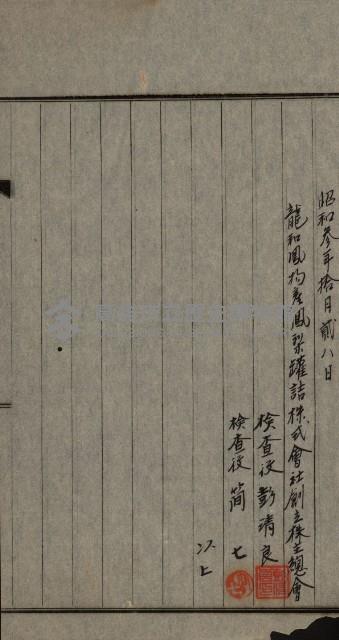 昭和參年拾月貳八日
龍和鳳物產鳳梨罐詰株式會社創立株主總會
檢查役 彭清良
檢查役 簡 七
以上